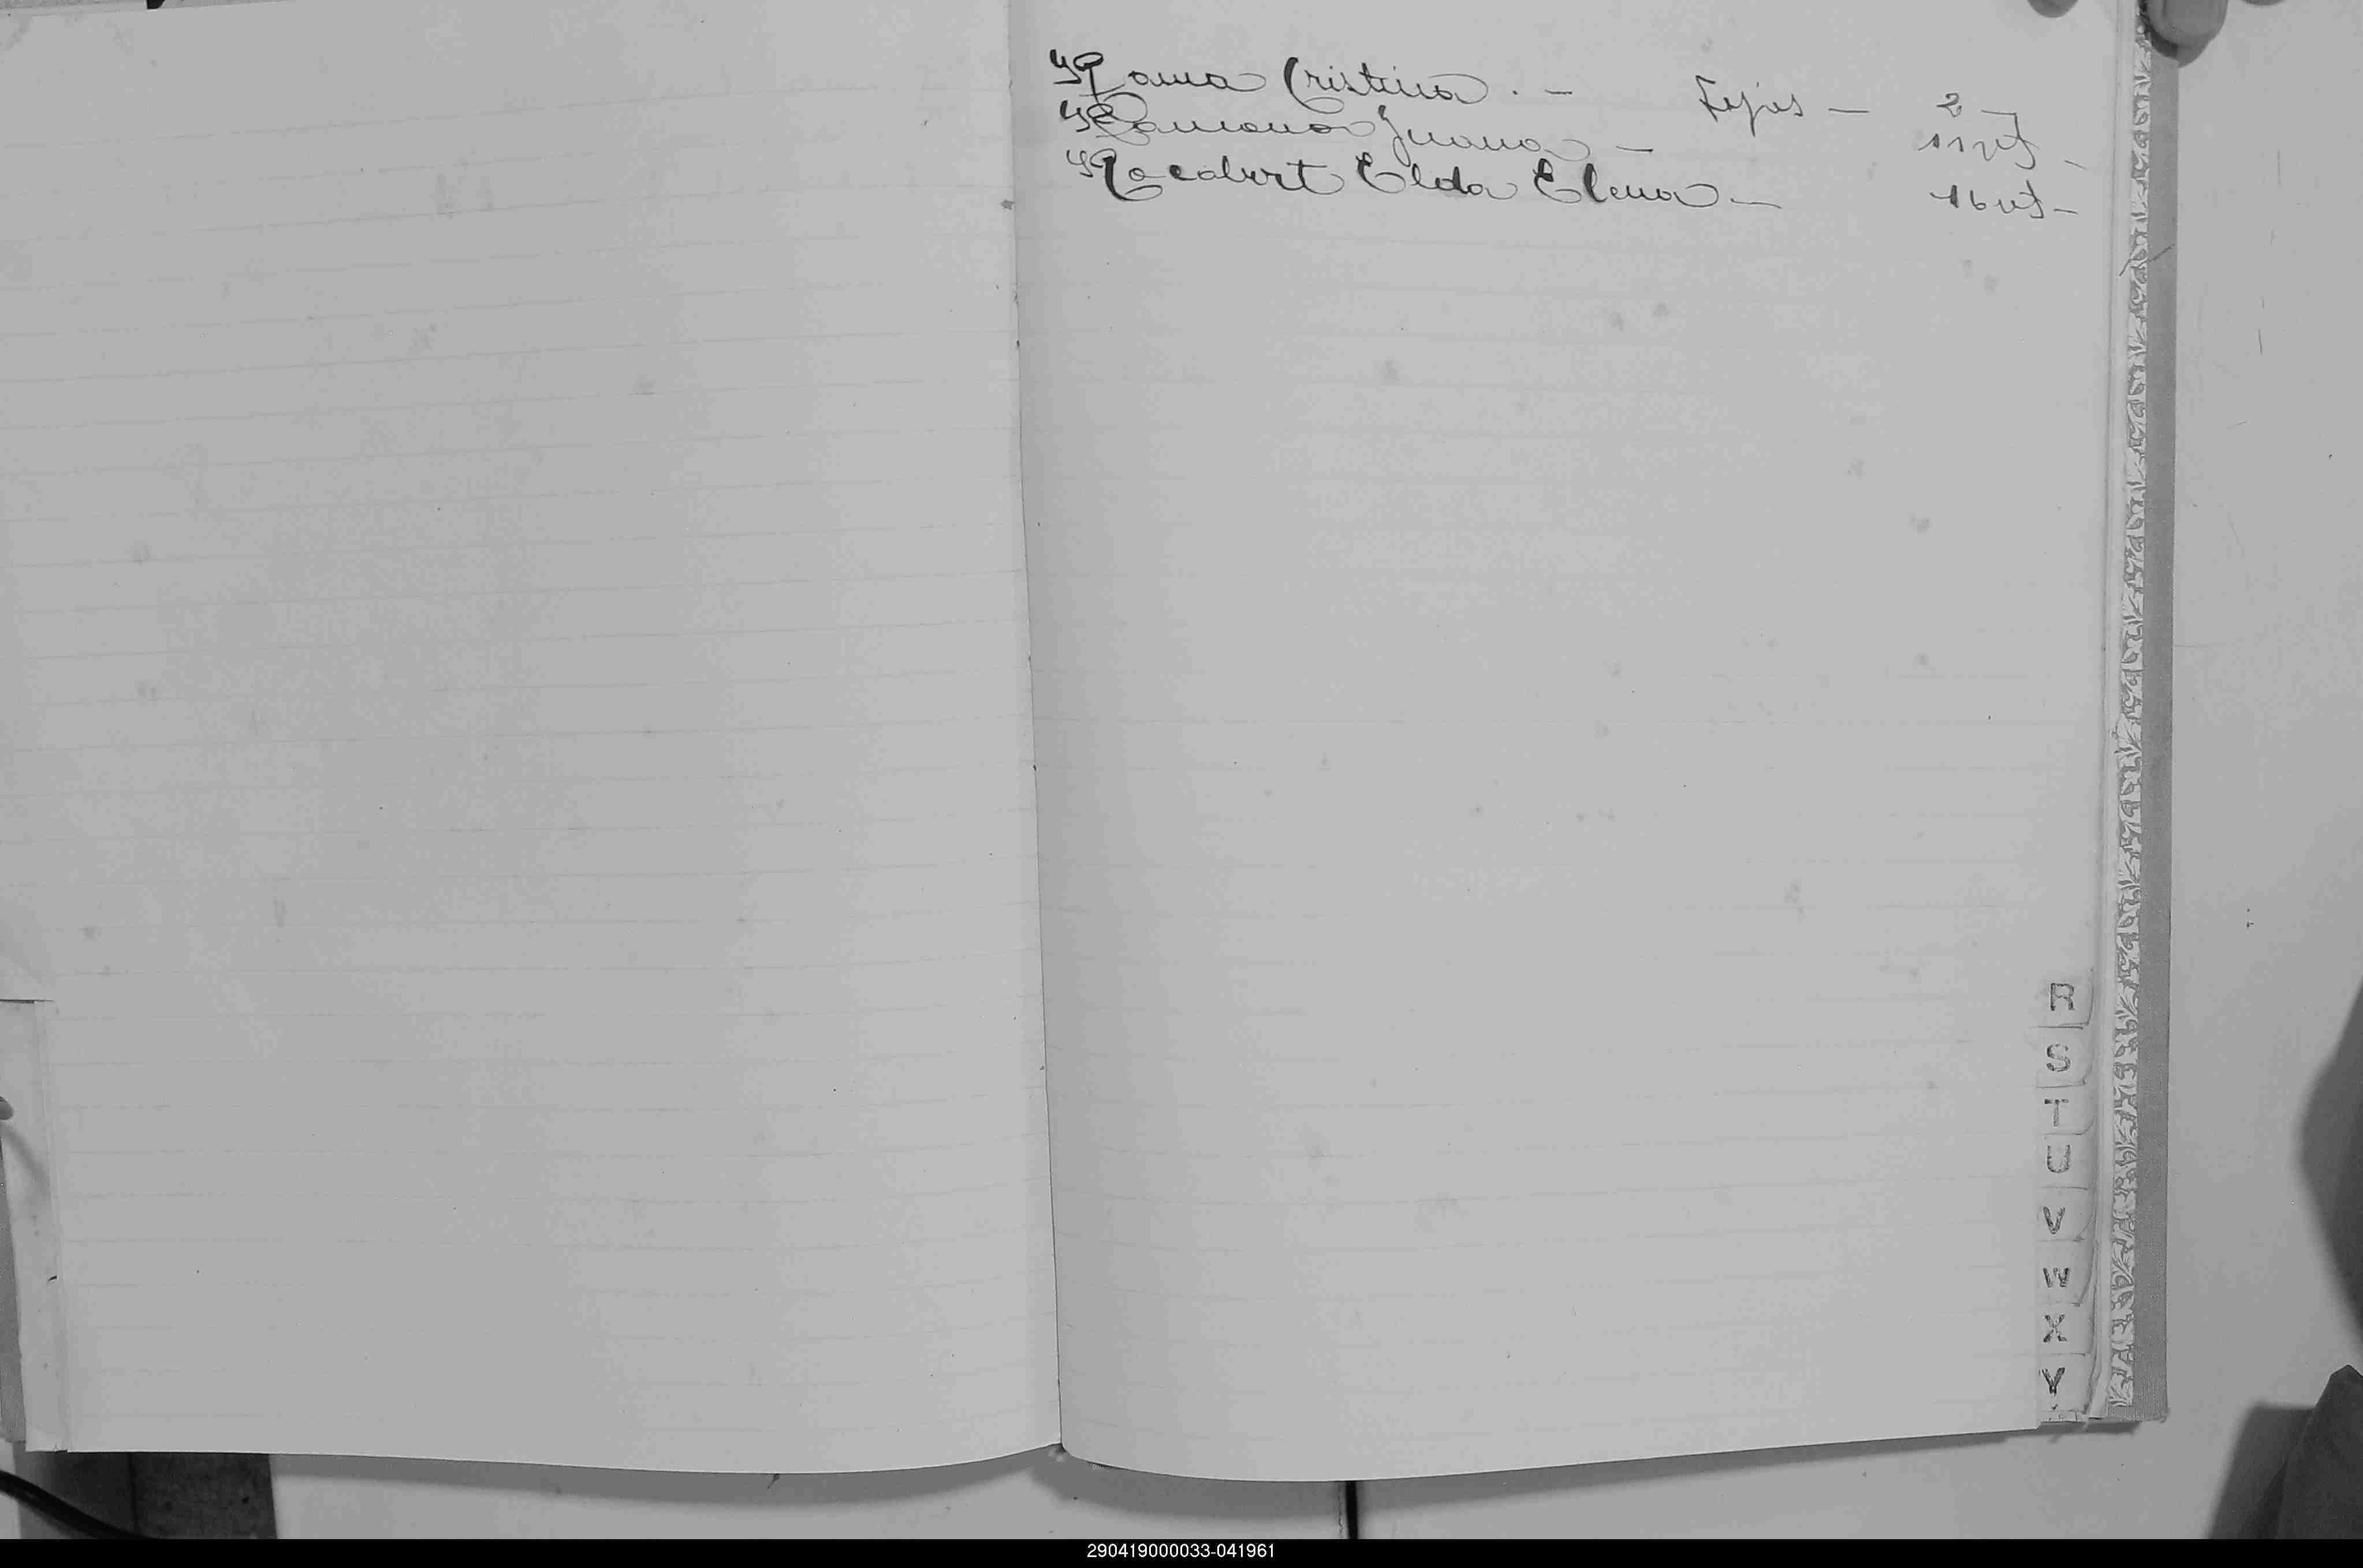 Rama Cristina . — Fojas — 2 —
Ramona Juana — 11 vt —
Rocabert Elda Elena — 16 vt —
R
S
T
U
V
W
X
Y
290419000033-041961